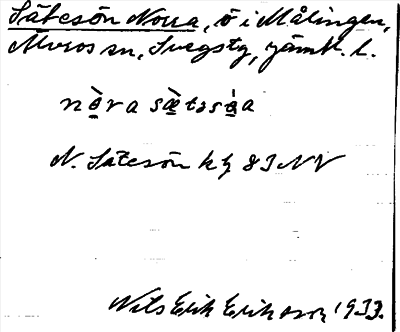 Sätesön Norra, ö i Målingen,
Älvros sn, Svegs tg, Jämtl. l.
nò̤ra sæ̀təsò̤a
N. Säteson kg 83 NV
Nils Erik Eriksson 1933.